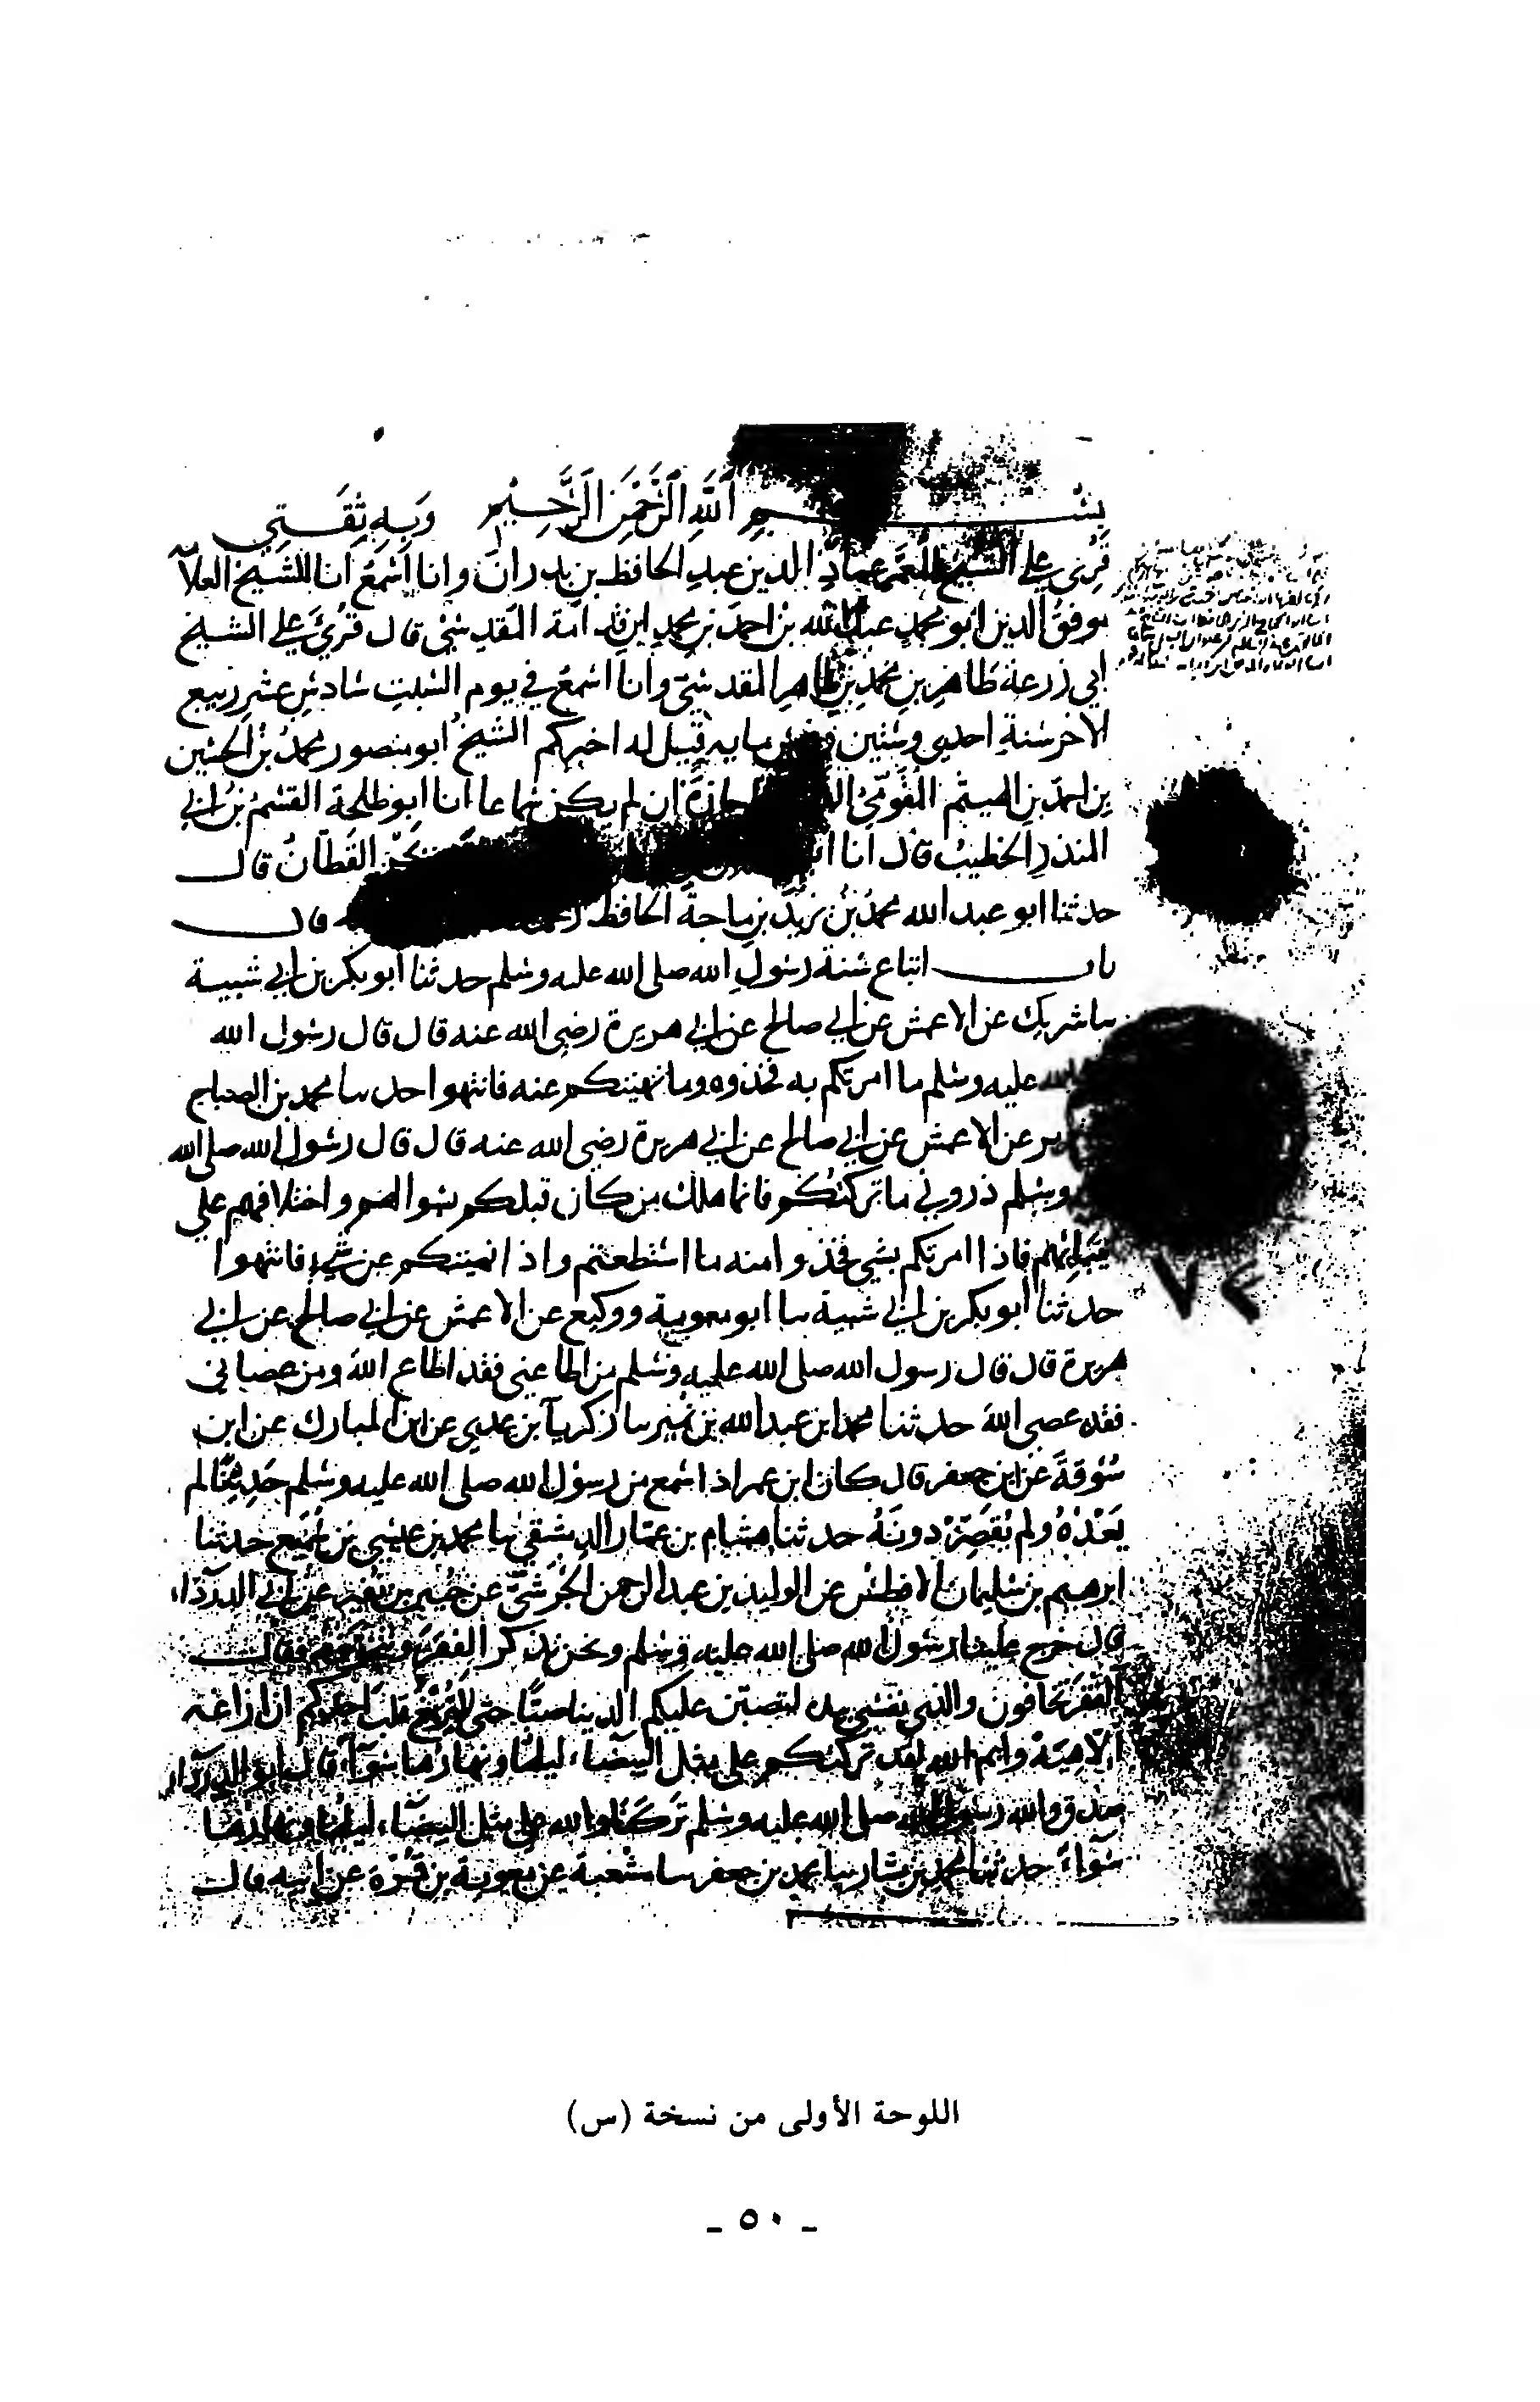 بسم الله الرحمن الرحيم وبه ثقتي
قرئ على الشيخ المعمر عماد الدين عبد الحافظ بن بدران وانا اسمع انا الشيخ العلا
موفق الدين ابو محمد عبد الله بن احمد بن محمد ابن قدامة المقدسي قال قرئ على الشيخ
ابي زرعة طاهر بن محمد بن طاهر المقدسي وانا اسمع في يوم السبت سادس عشر ربيع
الاخر سنة احدى وستين مايه قيل له اخبركم الشيخ ابو منصور محمد بن الحسين
بن احمد بن الهيثم المقومي اجازة ان لم يكن سماعا انا ابو طلحة القسم بن ابي
المنذر الخطيب قال انا القطان قال
حدثنا ابو عبد الله محمد بن يزيد بن ماجة الحافظ قال
باب اتباع سنة رسول الله صلى الله عليه وسلم حدثنا ابو بكر بن ابي شيبة
سا شريك عن الاعمش عن ابي صالح عن ابي هريرة رضي الله عنه قال قال رسول الله
عليه وسلم ما امرتكم به فخذوه وما نهيتكم عنه فانتهوا حدسا محمد بن الصباح
عن الاعمش عن ابي صالح عن ابي هريرة رضي الله عنه قال قال رسول الله صلى الله
وسلم ذروني ما تركتكم فانما هلك من كان قبلكم بسوالهم واختلافهم على
انبيائهم فاذا امرتكم بشي فخذوا منه ما استطعتم واذا نهيتكم عن شيء فانتهوا
حدثنا ابو بكر بن ابي شيبة سا ابو معوية ووكيع عن الاعمش عن ابي صالح عن ابي
هريرة قال قال رسول الله صلى الله عليه وسلم من اطاعني فقد اطاع الله ومن عصاني
فقد عصى الله حدثنا محمد ابن عبد الله بن نمير سا زكريآ بن عدي عن ابن المبارك عن ابن
سوقة عن ابي جعفر قال كان ابن عمر اذا سمع من رسول الله صلى الله عليه وسلم حديثا لم
يعده ولم يقصر دونه حدثنا هشام بن عمار الدمشقي سا محمد بن عيسى بن سميع حدثنا
ابرهيم بن سليمان الافطس عن الوليد بن عبد الرحمن الجرشي عن جبير بن نفير عن ابي الدرداء
قال خرج علينا رسول الله صلى الله عليه وسلم ونحن نذكر الفقر ونتخوفه فقال
الفقر تخافون والذي نفسي بيده لتصبن عليكم الدنيا صبا حتى لا يزيغ قلب احدكم ان ازاغه
الا هيه وايم الله لقد تركتكم على مثل البيضاء ليلها ونهارها سوآء قال ابو الدرداء
صدق والله رسول الله صلى الله عليه وسلم تركنا والله على مثل البيضاء ليلها ونهارها
سوآء حدثنا محمد بن بشار سا محمد بن جعفر سا شعبة عن معوية بن قرة عن ابيه قال
اللوحة الأولى من نسخة (س)
- ٥٠ -